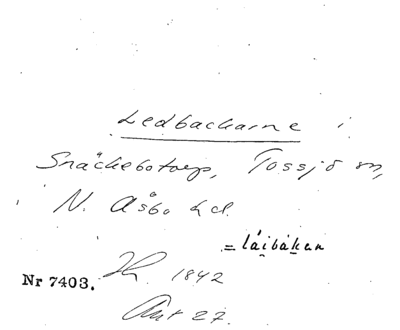 Ledbackarne i
Snäckebotorp, Tossjö sn,
N. Åsbo hd.
= láibákan
Nr 7403. 1842
Akt 27.